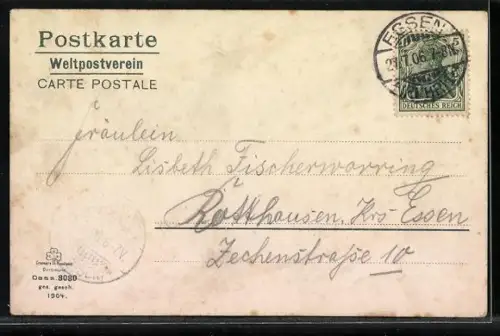 Postkarte
Weltpostverein
CARTE POSTALE
ESSEN
DEUTSCHES REICH
Fräulein
Lisbeth Fischerworring
Rotthausen, Krs Essen
Zechenstraße 10
Dess. 3020
ges. gesch.
1904.